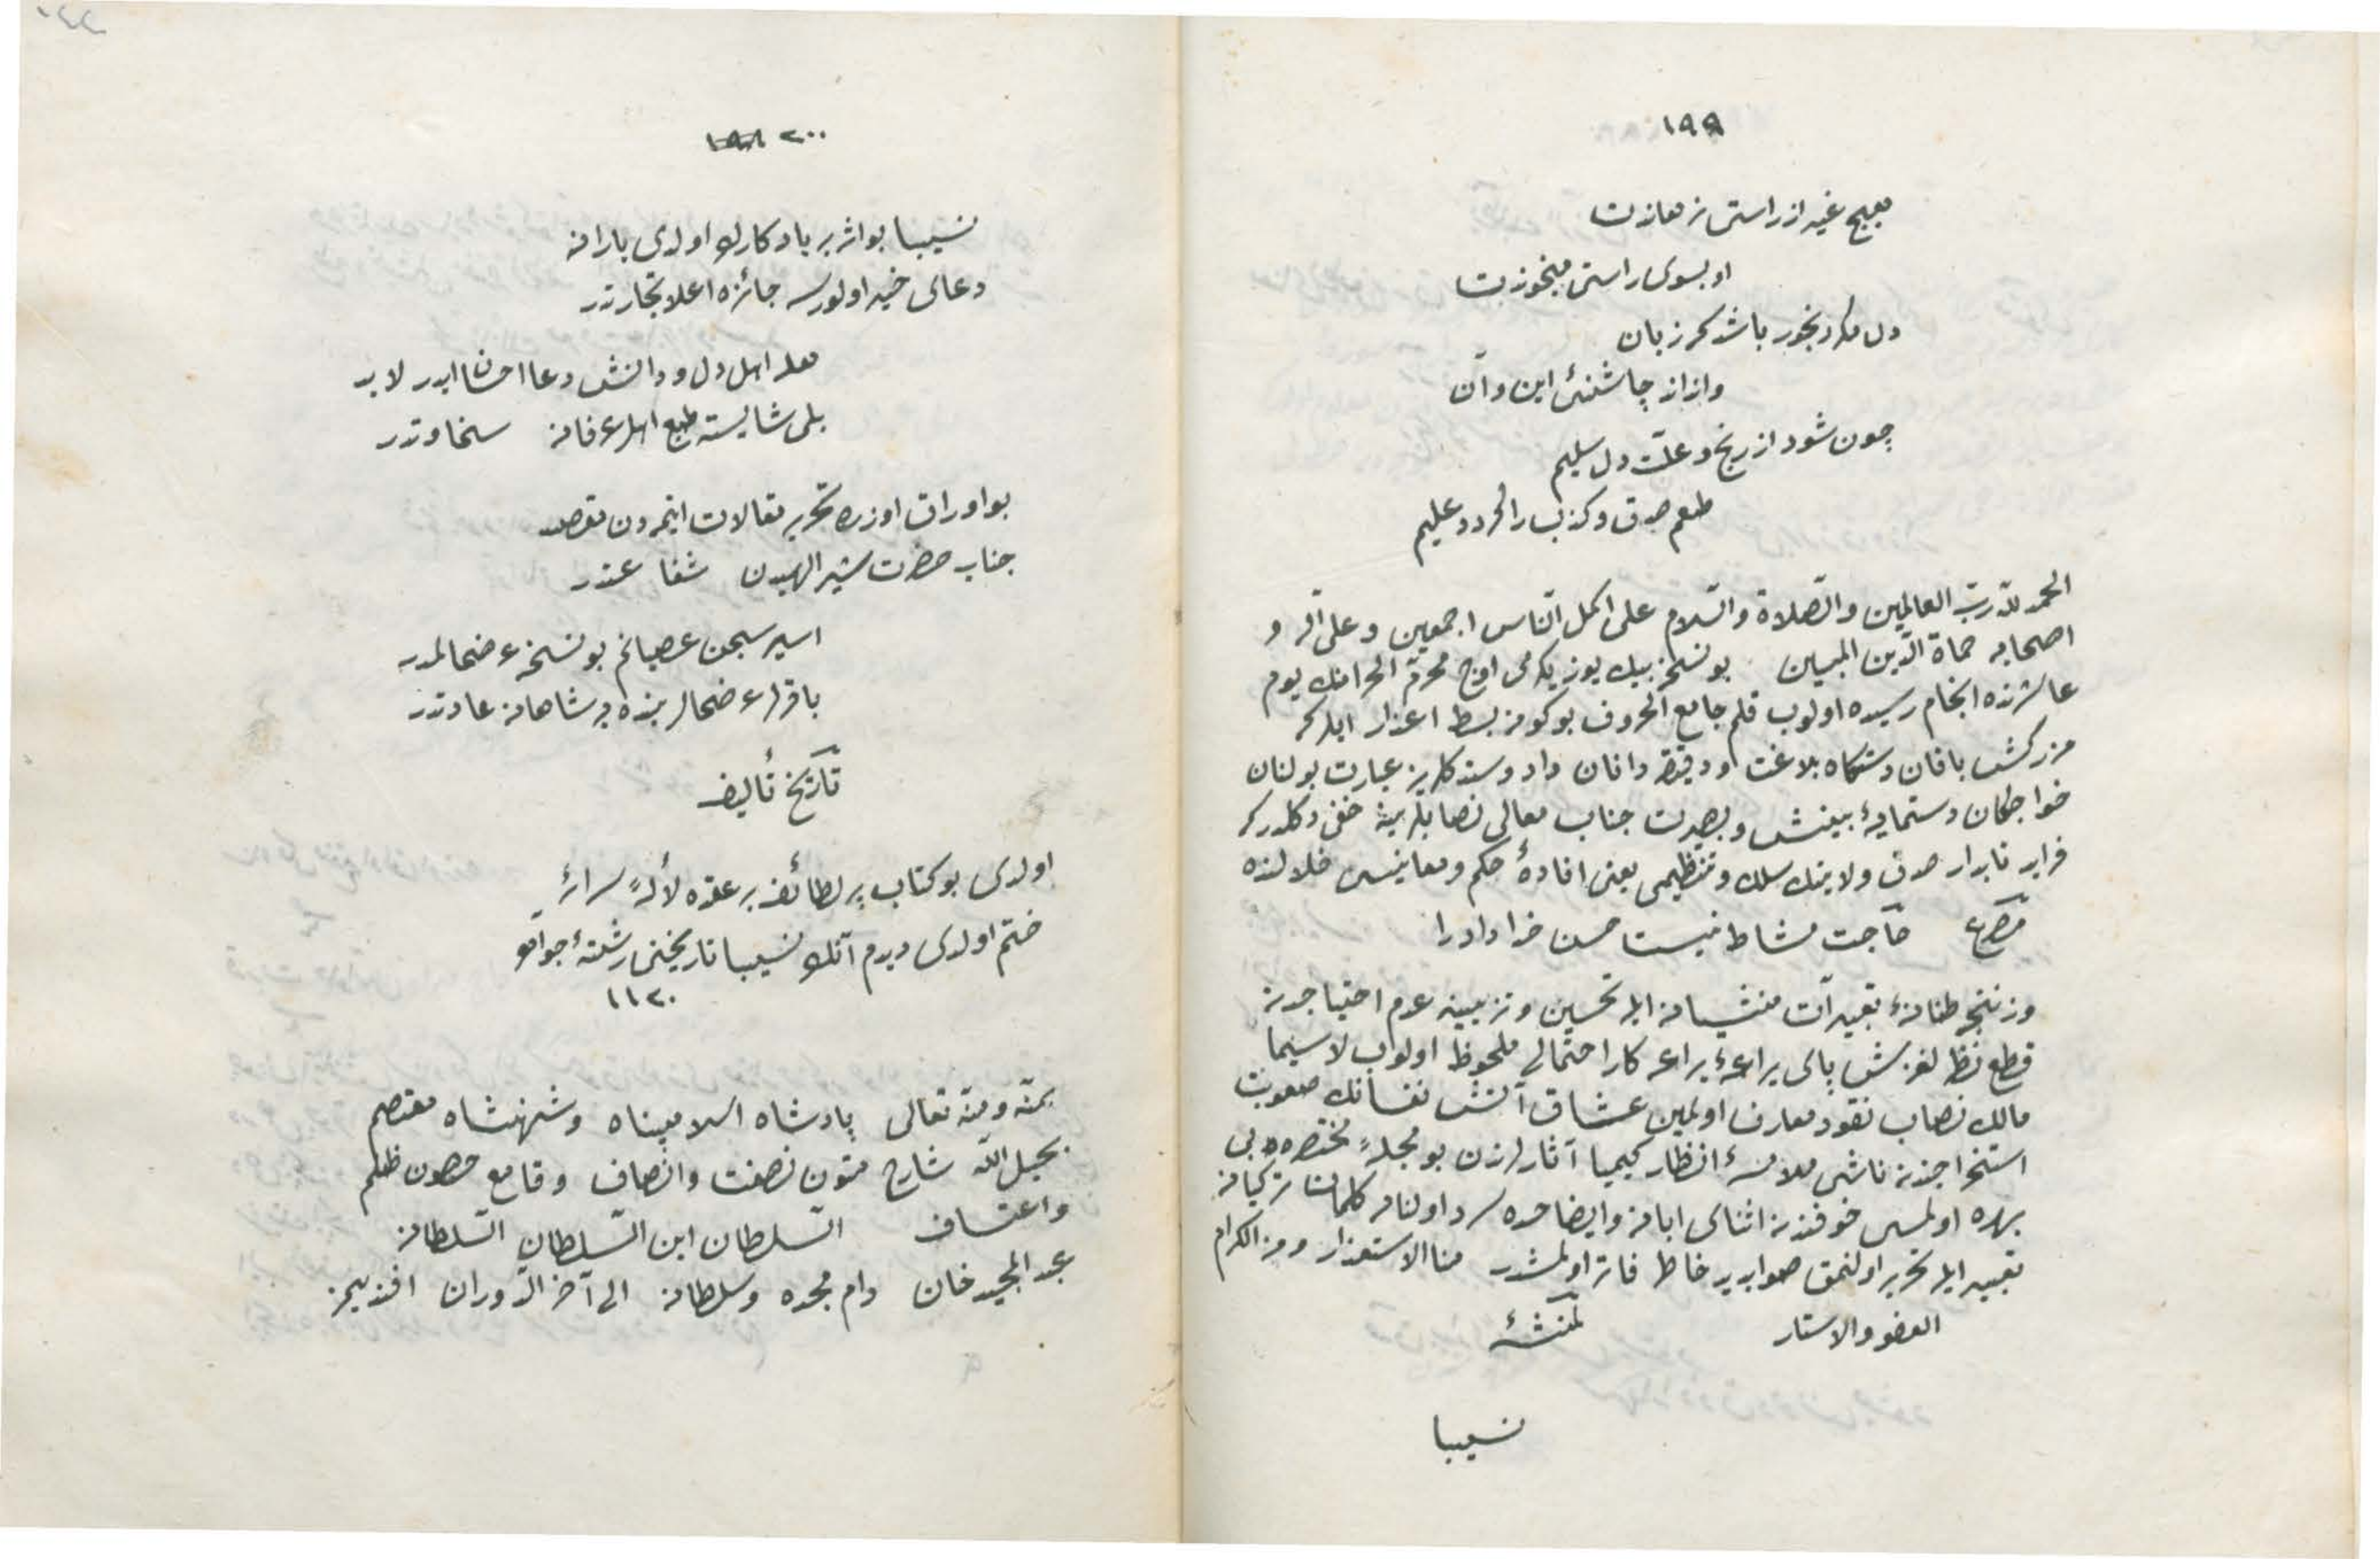 ١٩٩
هیچ غیر از راستی نرهاندت
او بسوی راستی میخواندت
دل مکر رنجور باشد که زبان
واند از چاشنئ این و آن
چون شود از رنج و علّت دل سلیم
طعم صدق و کذب را کردد علیم
الحمد للّه ربّ العالمین والصّلاة والسّلام علی اکمل النّاس اجمعین وعلی آله و
اصحابه حماة الدّین المبین بو نسخه بیك یوز یکرمی اوچ محرّم الحرامنك یوم
عاشرنده انجام رسیده اولوب قلم جامع الحروف بو کونه بسط اعذار ایلر که
زرکش بافان دستکاه بلاغت و دقیقه دانان داد وستد کلریز عبارت بولنان
خواجکان دستمایۀ بینش و بصیرت جناب معالی نصابلرینه خفی دکلدر که
فراید نابدار صدق ولاینك سلك وتنظیمی یعنی افادۀ حکم ومعاینسی خلالنده
مصرع حاجت مشاطه نیست حسن خدا داد را
قطع نظر لغزش پای یراعۀ براعه کار احتمالی ملحوظ اولوب لا سیما
مالك نصاب نقود معارف اولمین عشاق آتش نفسانك صعوبت
استخراجندن ناشی ملامسۀ انظار کیمیا آثارلرندن بو مجلۀ مختصره بی
بهره اولمسی خوفندن اثنای ابانه وایضاحده سرد اولنان کلمات ترکیانه
تعبیر ایله تحریر اولنمق صوابدید خاطر فاتر اولمشدر منا الاستعذار ومن الکرام
العفو والاستار لمنشئه
نسیبا
٢٠٠
نسیبا بو اثر بر یادکارك اولدی یارانه
دعای خیر اولورسه جائزه اعلا تجارتدر
اهل دل و دانش دعا احسان ایدرلا بد
بلی شایسته طبع اهل عرفانه سخاوتدر
بو اوراق اوزره تحریر مقالات ایتمه دن مقصد
جناب حضرت الهیدن شفاعتدر
اسیر سجن عصیانم بو نسخه عرضحالمدر
باقرلر عرضحال بنده یه شاهانه عادتدر
تاریخ تألیف
اولدی بو کتاب پر لطائف بر عقده لألۀ سرائر
ختم اولدی دیدم آنك نسیبا تاریخنی رشتۀ جواهر
١١٢٠
بمنّه ومنّه تعالی پادشاه اسلامپناه وشهنشاه معتصم
بحبل اللّه شارح متون نصفت وانصاف وقامع حصون ظلم
واعتساف السّلطان ابن السّلطان السّلطان
عبد المجید خان دام مجده وسلطانه الی آخر الدّوران افندیمز